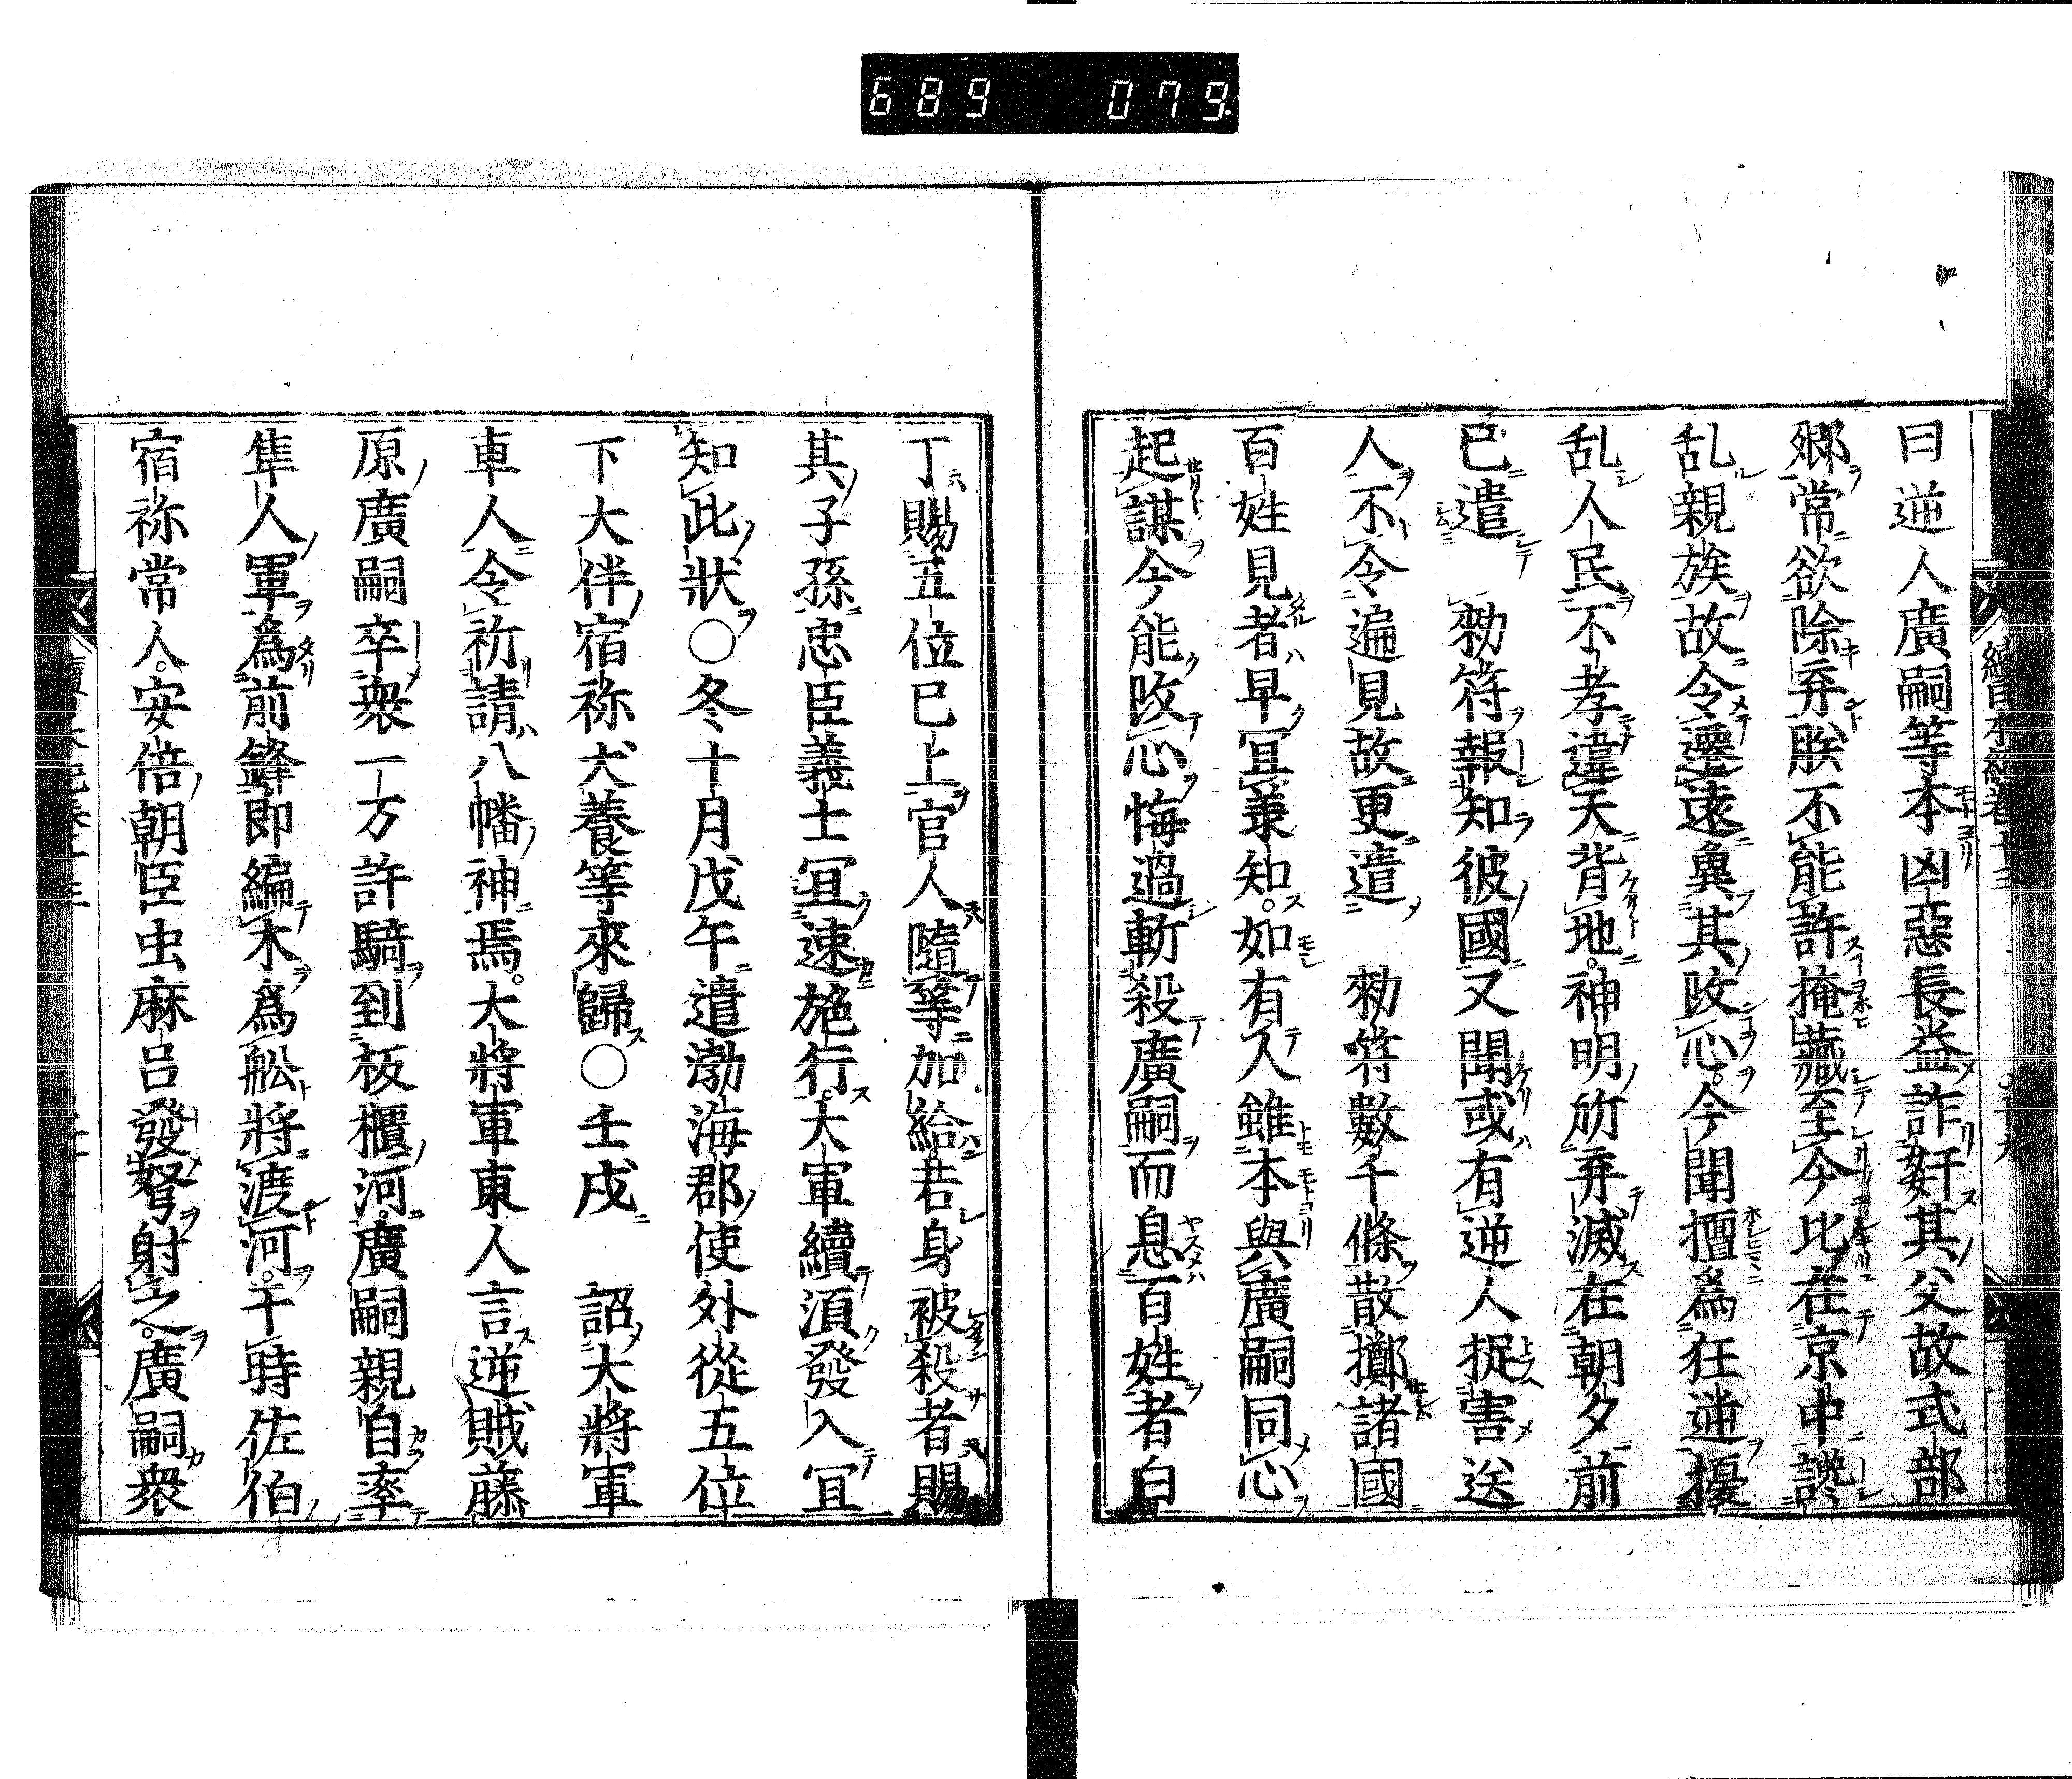 689 079
曰逆人廣嗣等本凶惡長益詐奸其父故式部
卿常欲除弃朕不能許掩藏至今比在京中讒
乱親族故令遷遠冀其改心。今聞擅爲狂逆擾
乱人民不孝違天背地。神明所弃滅在朝夕前
已遣 勑符報知彼國又聞或有逆人捉害送
人不令遍見故更遣 勑符數千條散擲諸國
百姓見者早宜兼知。如有人雖本與廣嗣同心
起謀今能改心悔過斬殺廣嗣而息百姓者白
丁賜五位已上官人隨等加給若身被殺者賜
其子孫忠臣義士宜速施行。大軍續須發入宜
知此狀○冬十月戊午遣渤海郡使外從五位
下大伴宿祢犬養等來歸○壬戌 詔大將軍
車人令祈請八幡神焉。大將軍東人言逆賊藤
原廣嗣卒衆一万許騎到板櫃河。廣嗣親自率
隼人軍爲前鋒即編木爲舩將渡河。于時佐伯
宿祢常人。安倍朝臣虫麻呂發弩射之。廣嗣衆